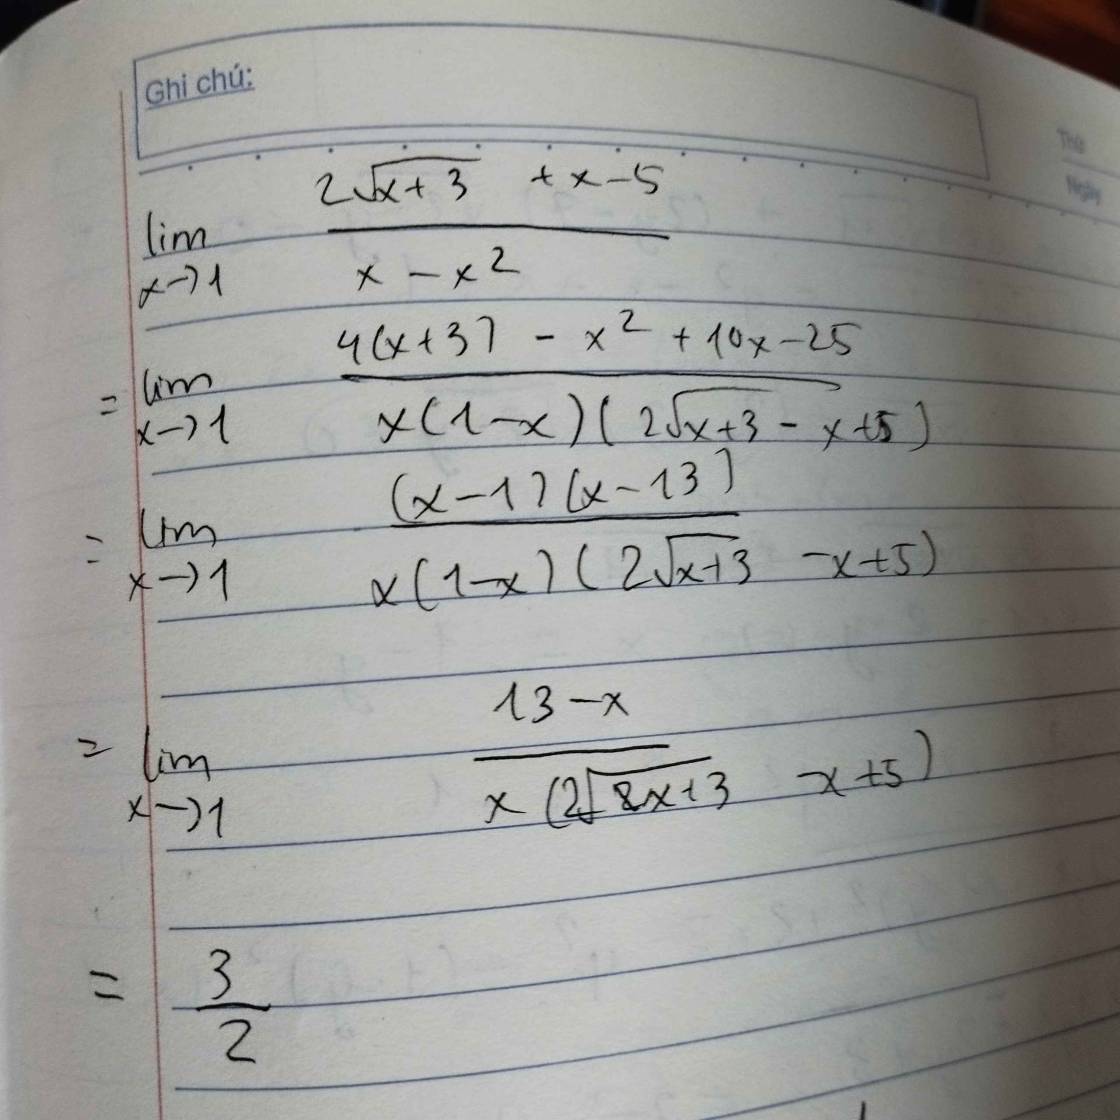 Ghi chú:
Thứ
Ngày
lim x→1 (2√(x+3) + x-5) / (x - x²)
= lim x→1 (4(x+3) - x² + 10x - 25) / (x(1-x)(2√(x+3) - x+5))
= lim x→1 ((x-1)(x-13)) / (x(1-x)(2√(x+3) -x+5))
= lim x→1 (13-x) / (x(2√(x+3) -x+5))
= 3/2